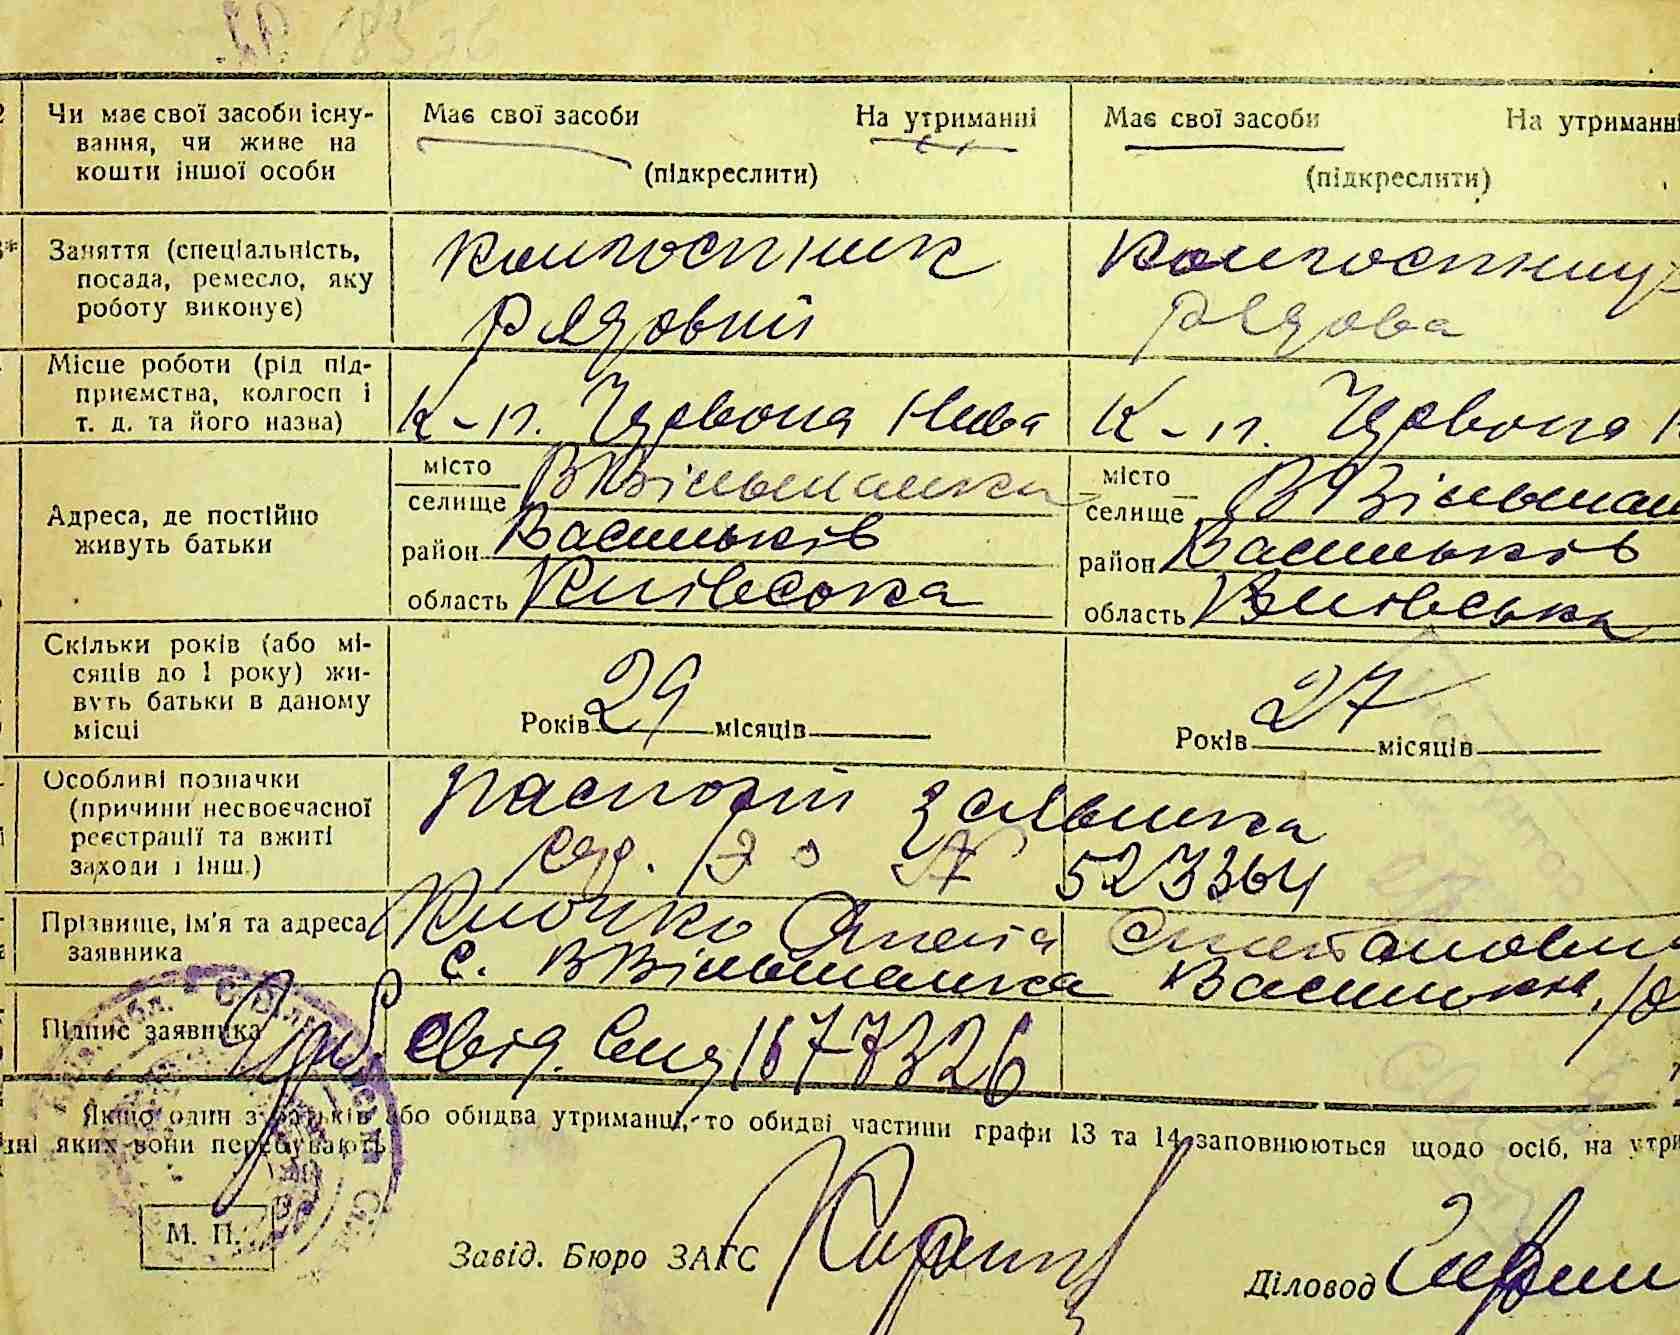 Чи має свої засоби існу-
вання, чи живе на
кошти іншої особи
Має свої засоби На утриманні
(підкреслити)
Має свої засоби На утриманні
(підкреслити)
Заняття (спеціальність,
посада, ремесло, яку
роботу виконує)
Колгоспник
Рядовий
Колгоспниця
Рядова
Місце роботи (рід під-
приємства, колгосп і
т. д. та його назва)
К-п. Червона Нива
К-п. Червона Н
Адреса, де постійно
живуть батьки
місто
селище ВВільшанка
район Васильків
область Київська
місто
селище ВВільшан
район Васильків
область Київська
Скільки років (або мі-
сяців до 1 року) жи-
вуть батьки в даному
місці
Років 29 місяців
Років 27 місяців
Особливі позначки
(причини несвоєчасної
реєстрації та вжиті
заходи і інш.)
паспорт заявника
523364
Прізвище, ім'я та адреса
заявника
Клочко
с. ВВільшанка Васильків.
Підпис заявника
свід. 1677326
Якщо один з батьків або обидва утриманці, то обидві частини графи 13 та 14 заповнюються щодо осіб, на утри
нні яких вони перебувають
М. П.
Завід. Бюро ЗАГС
Діловод